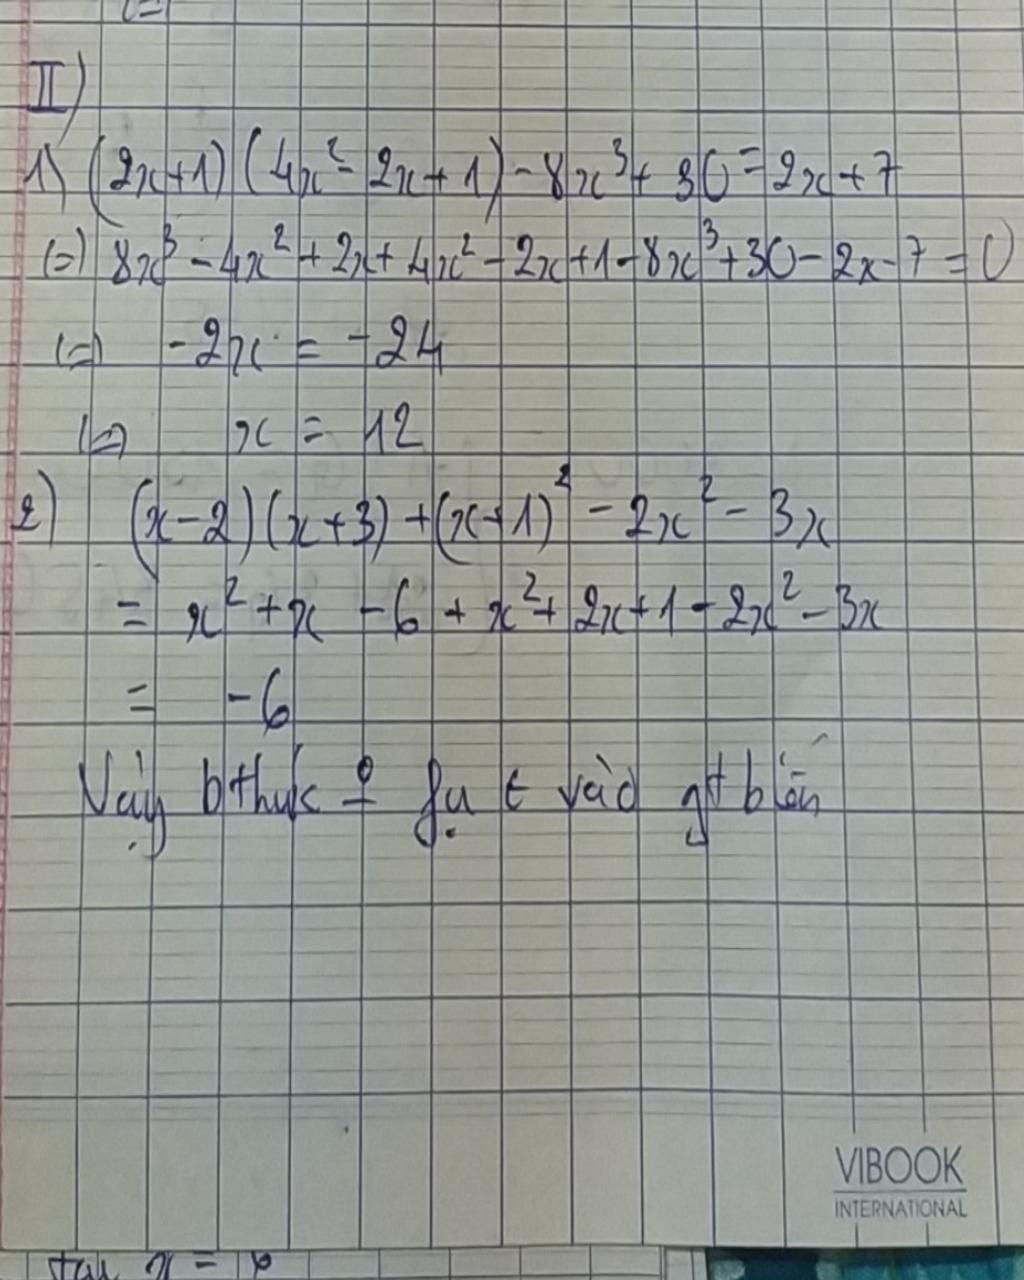 II)
1) (2x+1)(4x²-2x+1)-8x³+30=2x+7
(=) 8x³-4x²+2x+4x²-2x+1-8x³+30-2x-7=0
(=) -2x = -24
(=) x = 12
2) (x-2)(x+3)+(x+1)²-2x²-3x
= x²+x-6+x²+2x+1-2x²-3x
= -6
Vậy bthức fụ t vào gt biến
VIBOOK
INTERNATIONAL